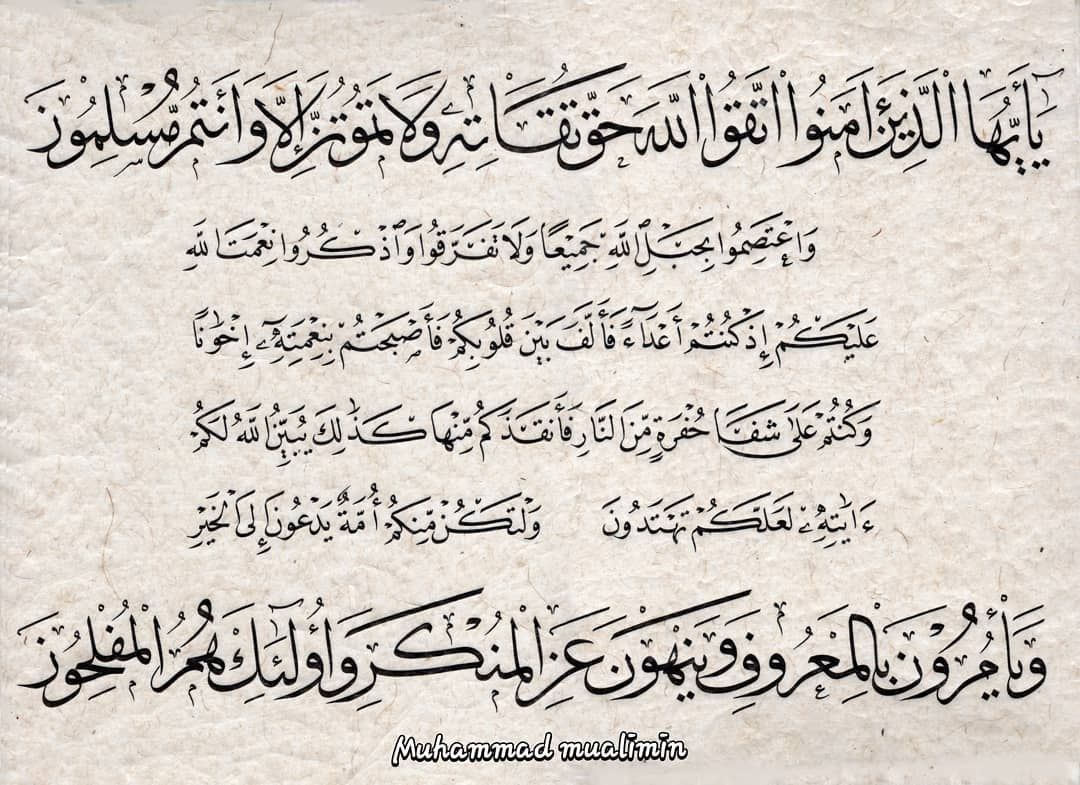 يَٰٓأَيُّهَا الَّذِينَ ءَامَنُوا اتَّقُوا اللَّهَ حَقَّ تُقَاتِهِ وَلَا تَمُوتُنَّ إِلَّا وَأَنتُم مُّسْلِمُونَ
وَاعْتَصِمُوا بِحَبْلِ اللَّهِ جَمِيعًا وَلَا تَفَرَّقُوا وَاذْكُرُوا نِعْمَتَ اللَّهِ
عَلَيْكُمْ إِذْ كُنتُمْ أَعْدَآءً فَأَلَّفَ بَيْنَ قُلُوبِكُمْ فَأَصْبَحْتُم بِنِعْمَتِهِۦٓ إِخْوَٰنًا
وَكُنتُمْ عَلَىٰ شَفَا حُفْرَةٍ مِّنَ النَّارِ فَأَنقَذَكُم مِّنْهَا كَذَٰلِكَ يُبَيِّنُ اللَّهُ لَكُمْ
ءَايَٰتِهِۦ لَعَلَّكُمْ تَهْتَدُونَ وَلْتَكُن مِّنكُمْ أُمَّةٌ يَدْعُونَ إِلَى الْخَيْرِ
وَيَأْمُرُونَ بِالْمَعْرُوفِ وَيَنْهَوْنَ عَنِ الْمُنكَرِ وَأُولَٰٓئِكَ هُمُ الْمُفْلِحُونَ
Muhammad mualīmīn